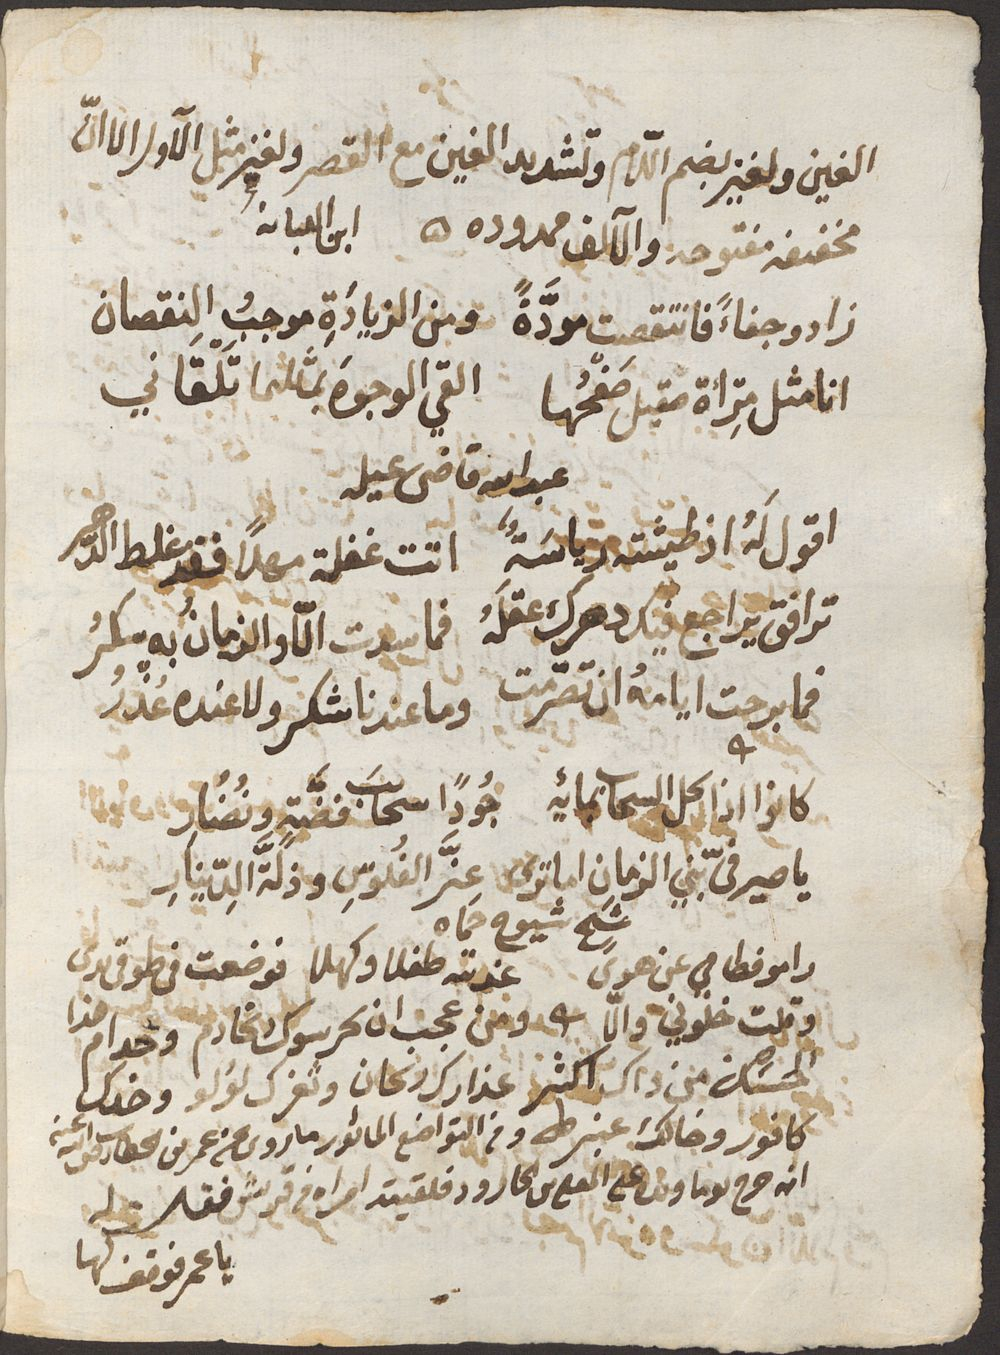 الغين ولغيز بضم اللام وتشديد الغين مع القصر ولغيز مثل الأول الا انّ
مخففه مفتوحه والألف ممدوده ه ابن اللبانه
زادو جفاءً فانتقصت مودَّةً ومن الزيادَةِ موجبُ النقصان
انا مثل مِرأة صقيل صَفحُها القى الوجوهَ بمثلما تَلْقَاني
عبد الله قاضى ميله
اقول لَهُ اذ طيشته رياسَةٌ اتت غفلة مهلًا فقد غلط الدهر
ترافق يراجع فيك دهرك عقلَهُ فما سدت الّا والزمانُ به سكرُ
فما برحت ايامهُ ان تصرّمت وما عندنا شكر ولا عنده عُذْرُ
ه
كانوا اذا بخل السحاب بمائه جُودًا سحابَ فضَّةٍ ونُضَارِ
يا صيرفىّ بَني الزمان اما ترى عِزَّ الفُلوسِ وذلَّةَ الدّينارِ
شيخ شيوخ حماه
راموا فطامي عن هوىً غذيته طفلا وكهلا فوضعت فى طوقي يدى
وقلت خلّوني والّا ه ومن عجب ان يحرسوك بخادم وخدام هذا
الحسن من ذاك اكثر عذارك ريحان وثغرك لؤلؤ وخدك
كافور وخالك عنبر ومن التواضع المأثور ما روى عن عمر بن الخطاب رضى الله عنه
انه خرج يوما ويده على المعلى بن الجارود فلقيته امراة من قريش فقالت له
يا عمر فوقف لها